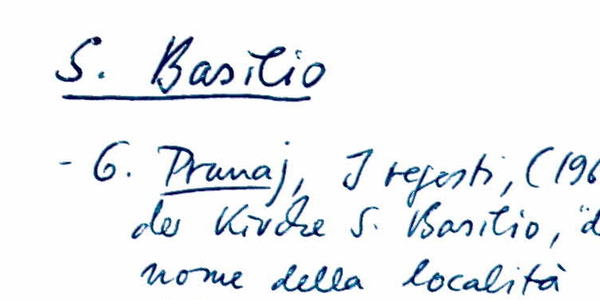 S. Basilio
- G. Prunaj, I regesti, (196
der Kirche S. Basilio, "d
nome della località